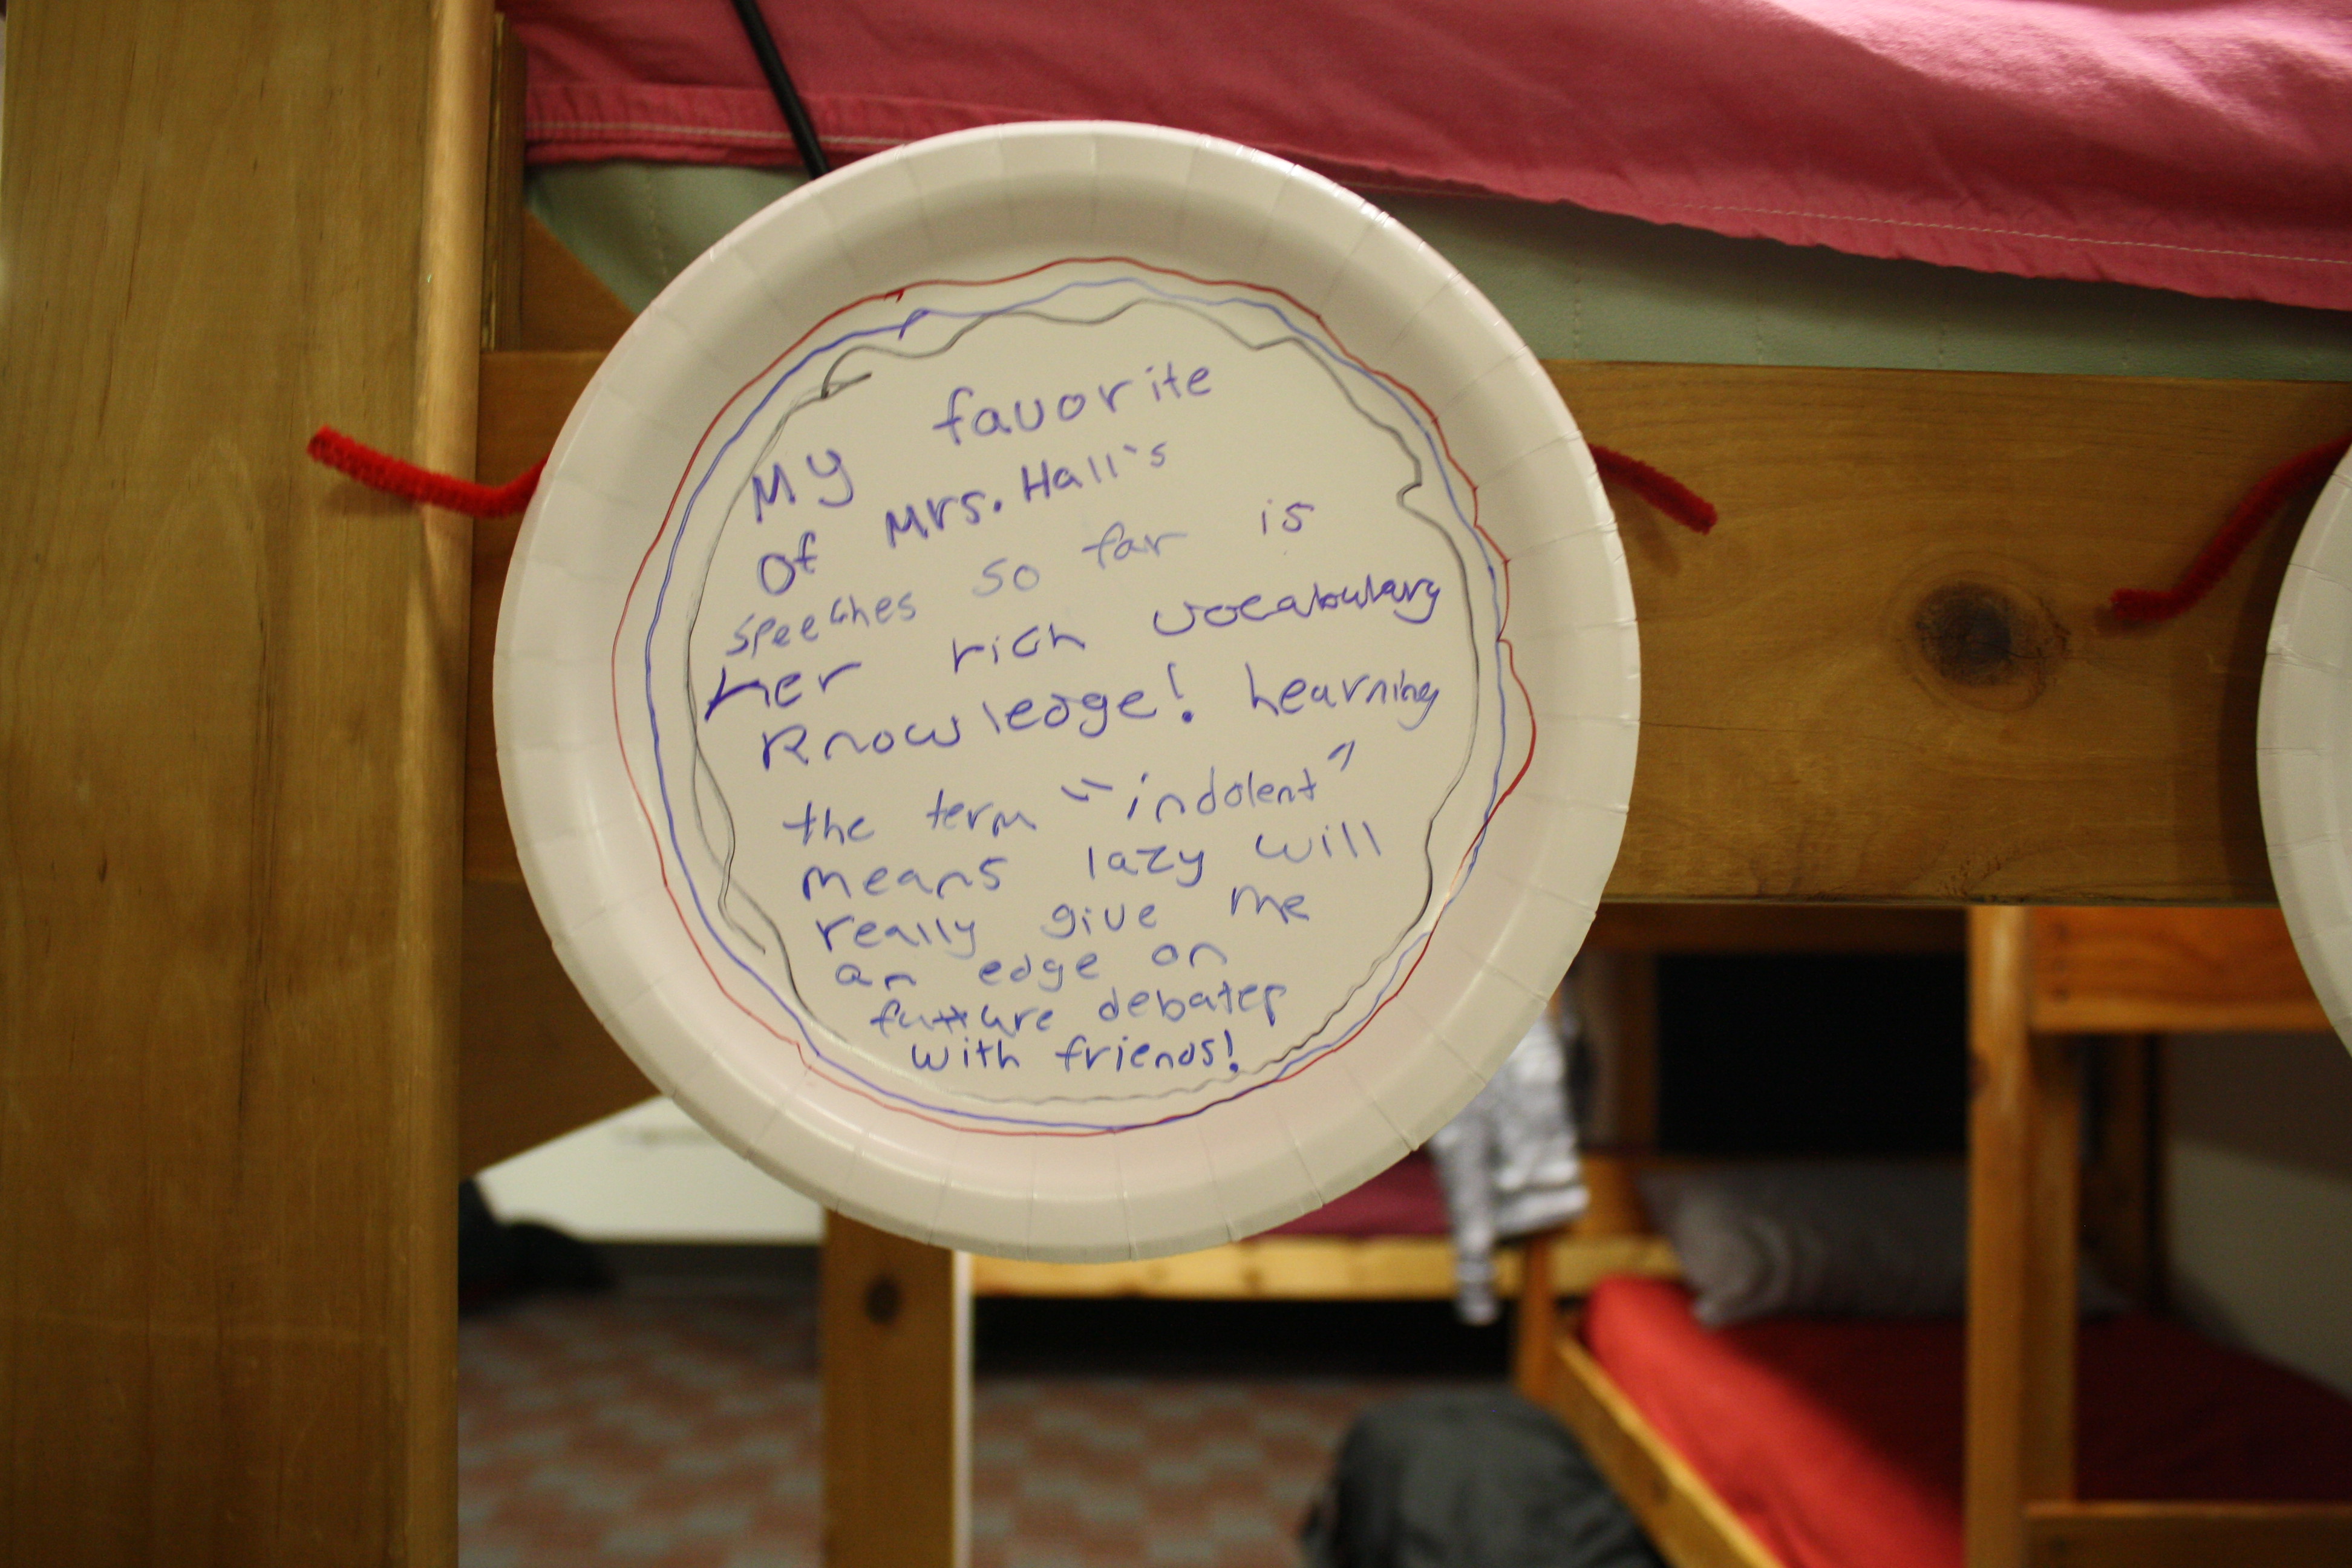 My favorite
Of Mrs. Hall's
speeches so far is
her rich vocabulary
Knowledge! Learning
the term "indolent"
means lazy will
really give me
an edge on
future debates
with friends!